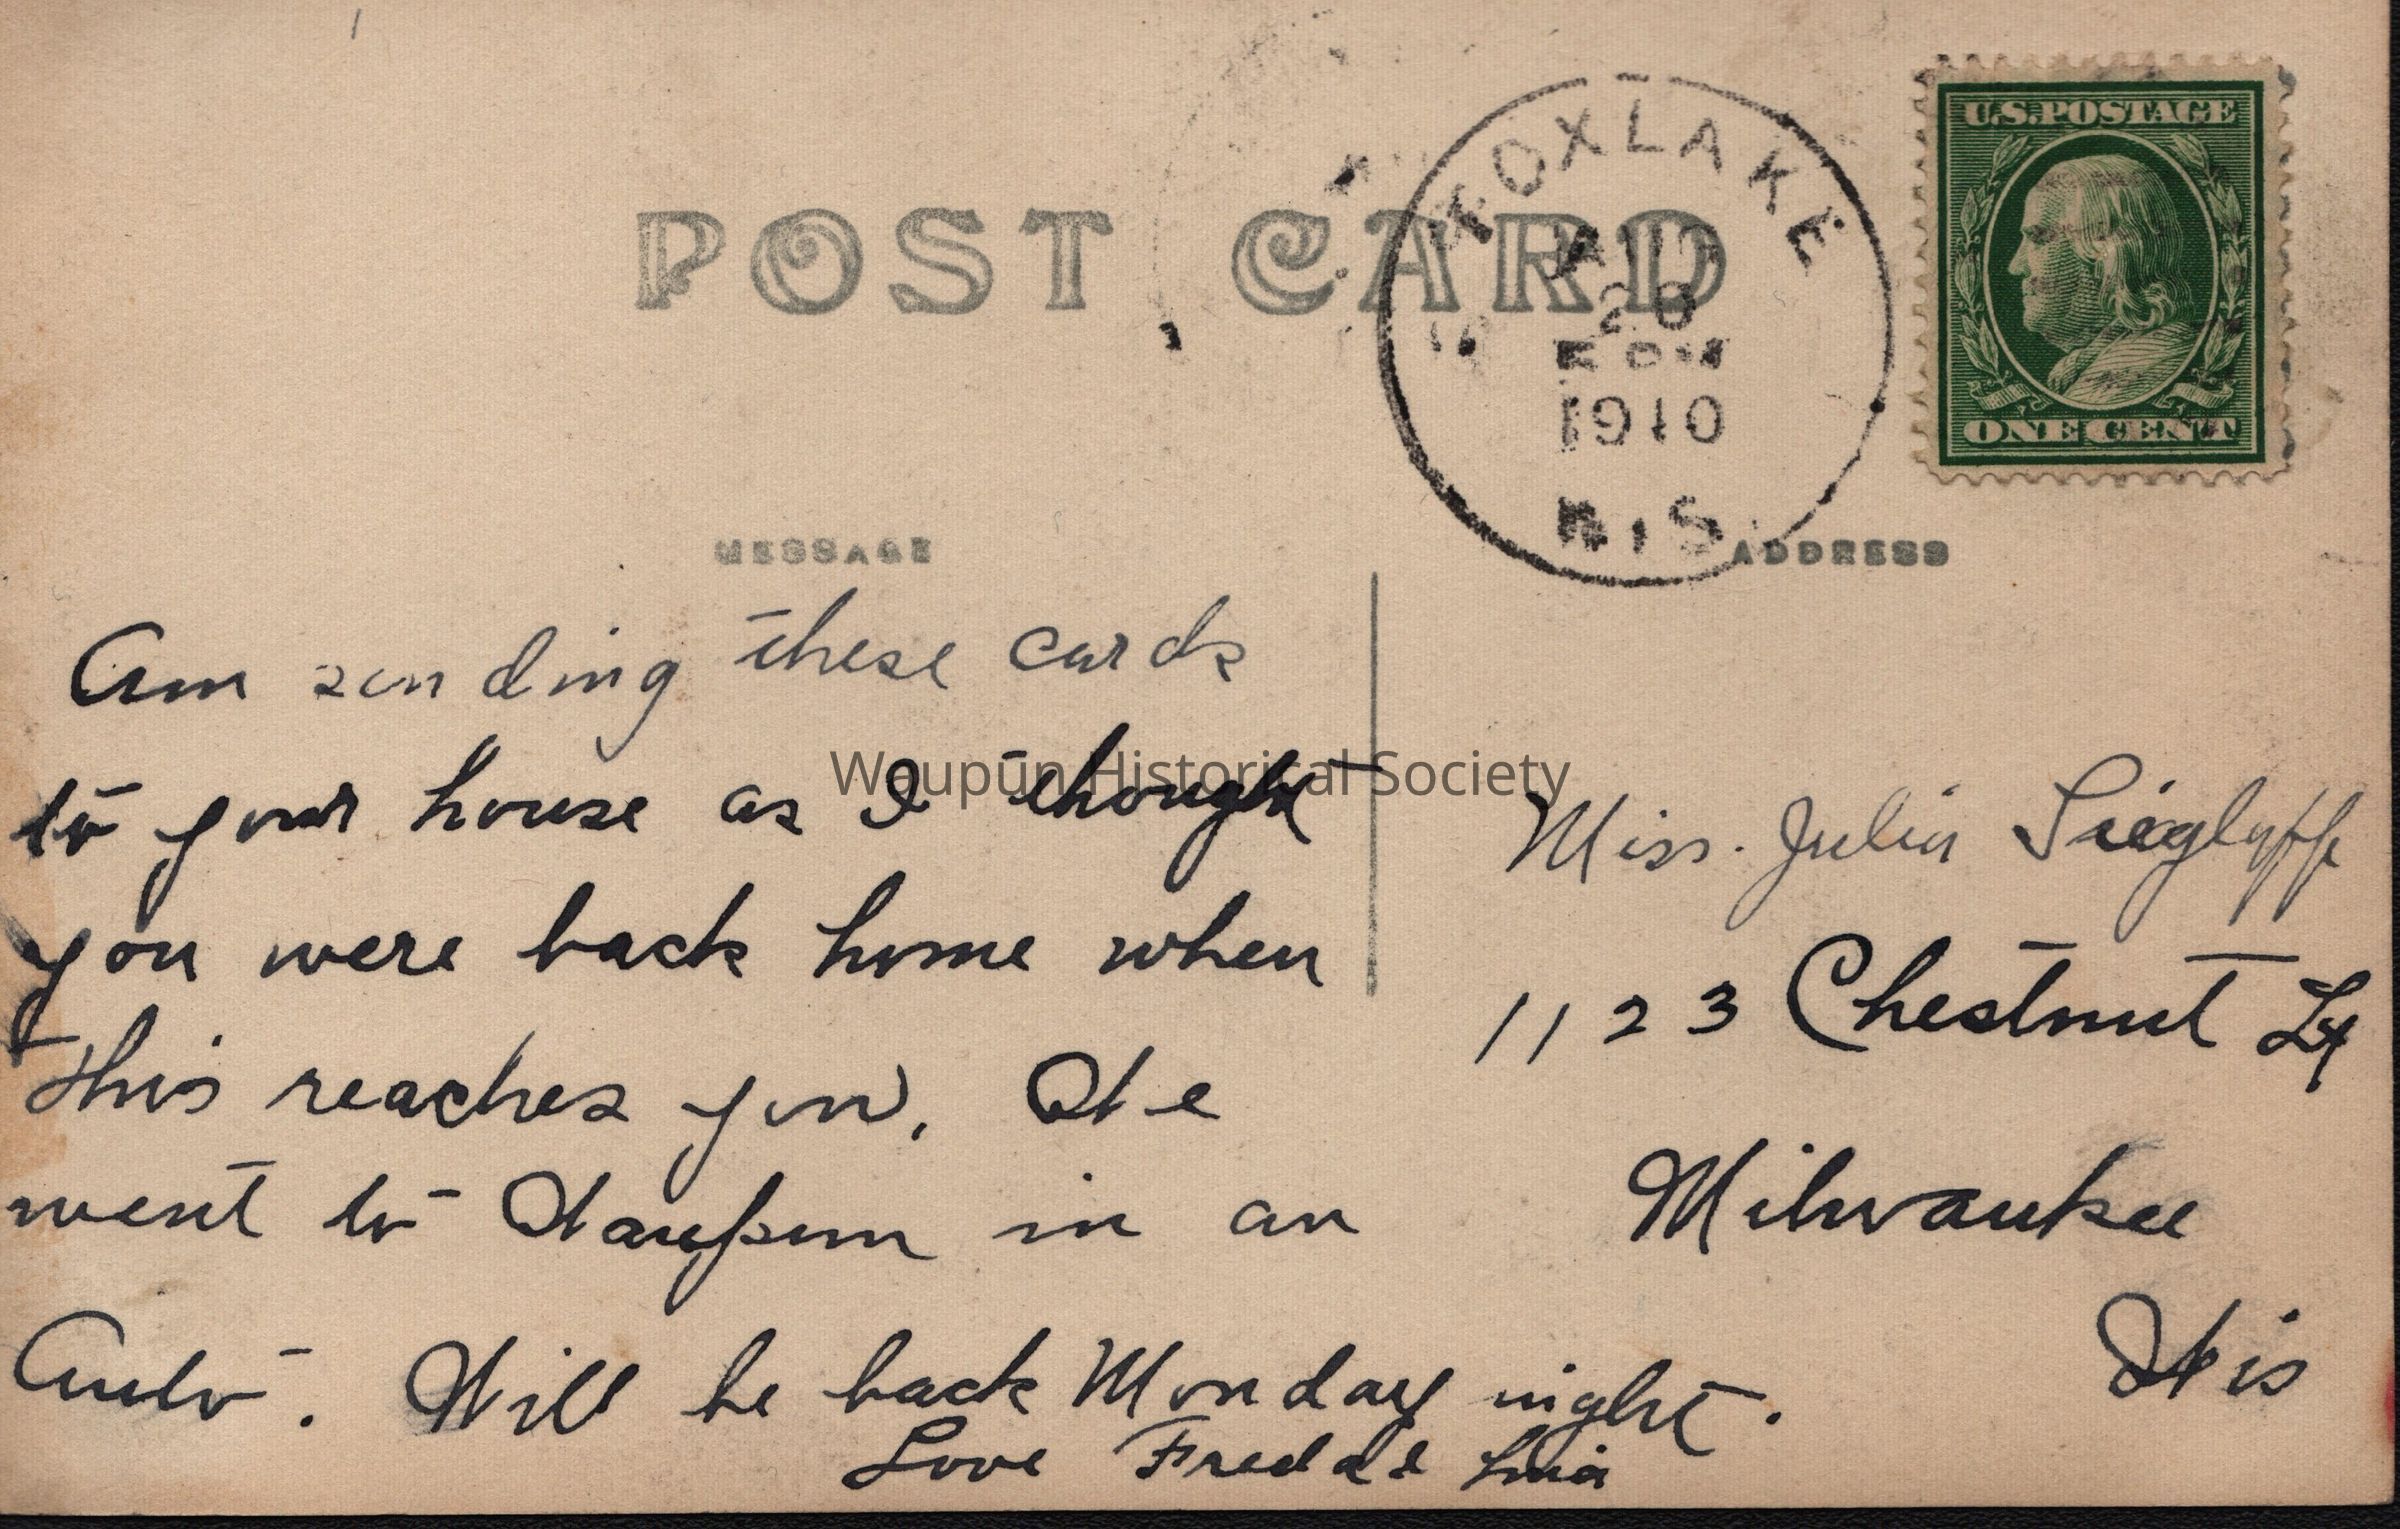 POST CARD
FOXLAKE
AUG
20
1910
WIS
U.S. POSTAGE
ONE CENT
MESSAGE
ADDRESS
Am sending these cards
to your house as I thought
you were back home when
this reaches you. We
went to Waupun in an
Auto. Will be back Monday night.
Love Fred
Miss. Julia
1123 Chestnut St
Milwaukee
Wis
Waupun Historical Society